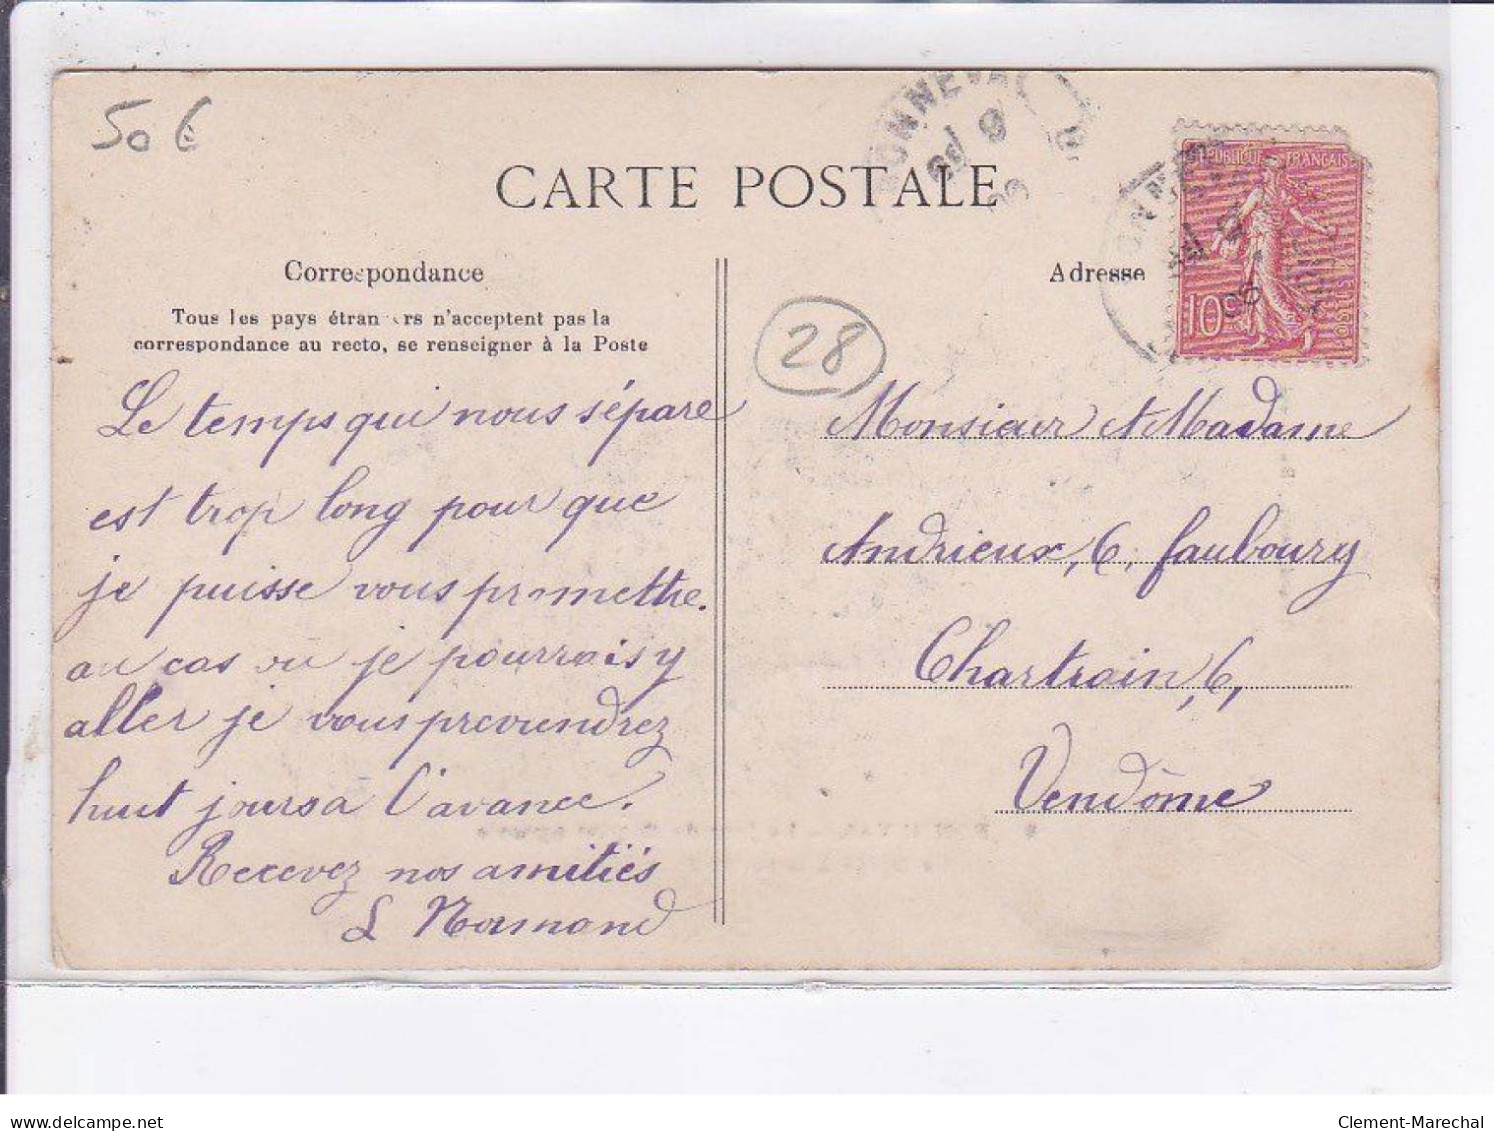 50 €
BONNEVAL
CARTE POSTALE
RÉPUBLIQUE FRANÇAISE
10c
POSTES
Correspondance
Adresse
Tous les pays étrangers n'acceptent pas la
correspondance au recto, se renseigner à la Poste
28
Le temps qui nous sépare
est trop long pour que
je puisse vous promettre.
au cas où je pourrais y
aller je vous previendrez
huit jours à l'avance.
Recevez nos amitiés
L Normand
Monsieur et Madame
Andrieux, 6, faubourg
Chartrain, 6,
Vendôme
www.delcampe.net
Clement-Marechal